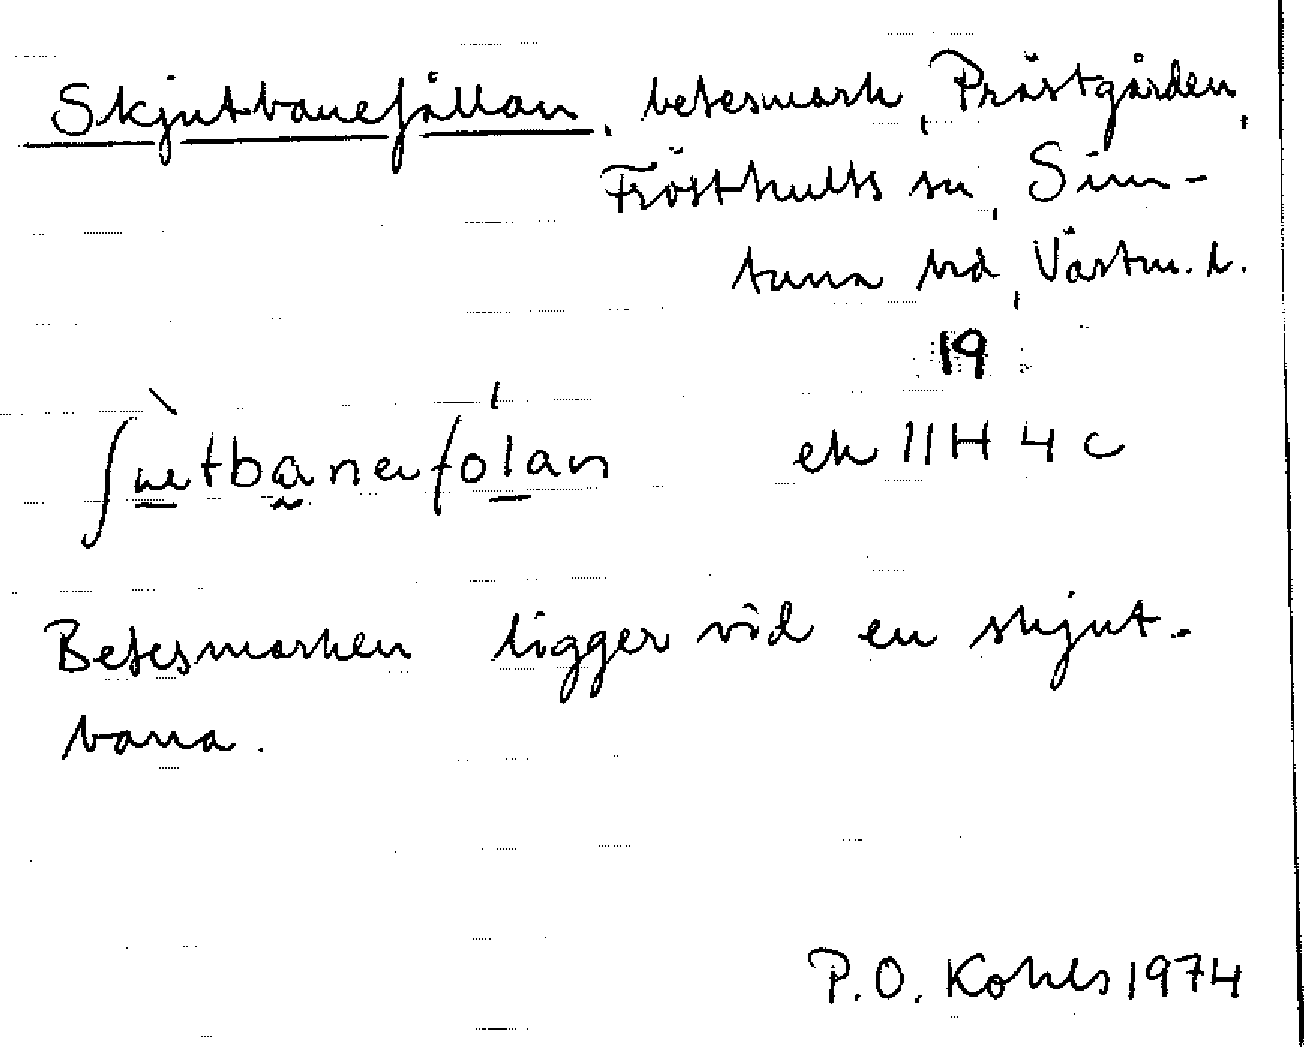 Skjutbanefållan, betesmark, Prästgården,
Frösthults sn, Sim-
tuna hd, Västm. l.
19
ek 11H 4c
Betesmarken ligger vid en skjut-
bana.
P.O. Kohls 1974